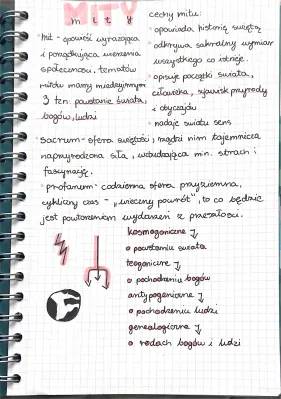 MITY
mity
· mit - opowieść wyrażająca
i porządkująca wierzenia
społeczności. tematów
mitów mamy
3 tzn. powstanie świata,
bogów, ludzi
cechy mitu:
· opowiada historię świętą
· odkrywa sakralny wymiar
wszystkego co istnieje.
· opisuje początki świata,
człowieka, zjawisk przyrody
i obyczajów
· nadaje światu sens
· sacrum - sfera świętości, rządzi nim tajemnicza
nadprzyrodzona siła, wzbudzająca min. strach i
fascynację.
· profanum - codzienna sfera przyziemna,
cykliczny czas - „wieczny powrót", to co będzie
jest powtórzeniem wydarzeń z przeszłości.
kosmogoniczne
o powstaniu świata
teogoniczne
o pochodzeniu bogów
antypogeniczne
o pochodzeniu ludzi
genealogiczne
o rodach bogów i ludzi